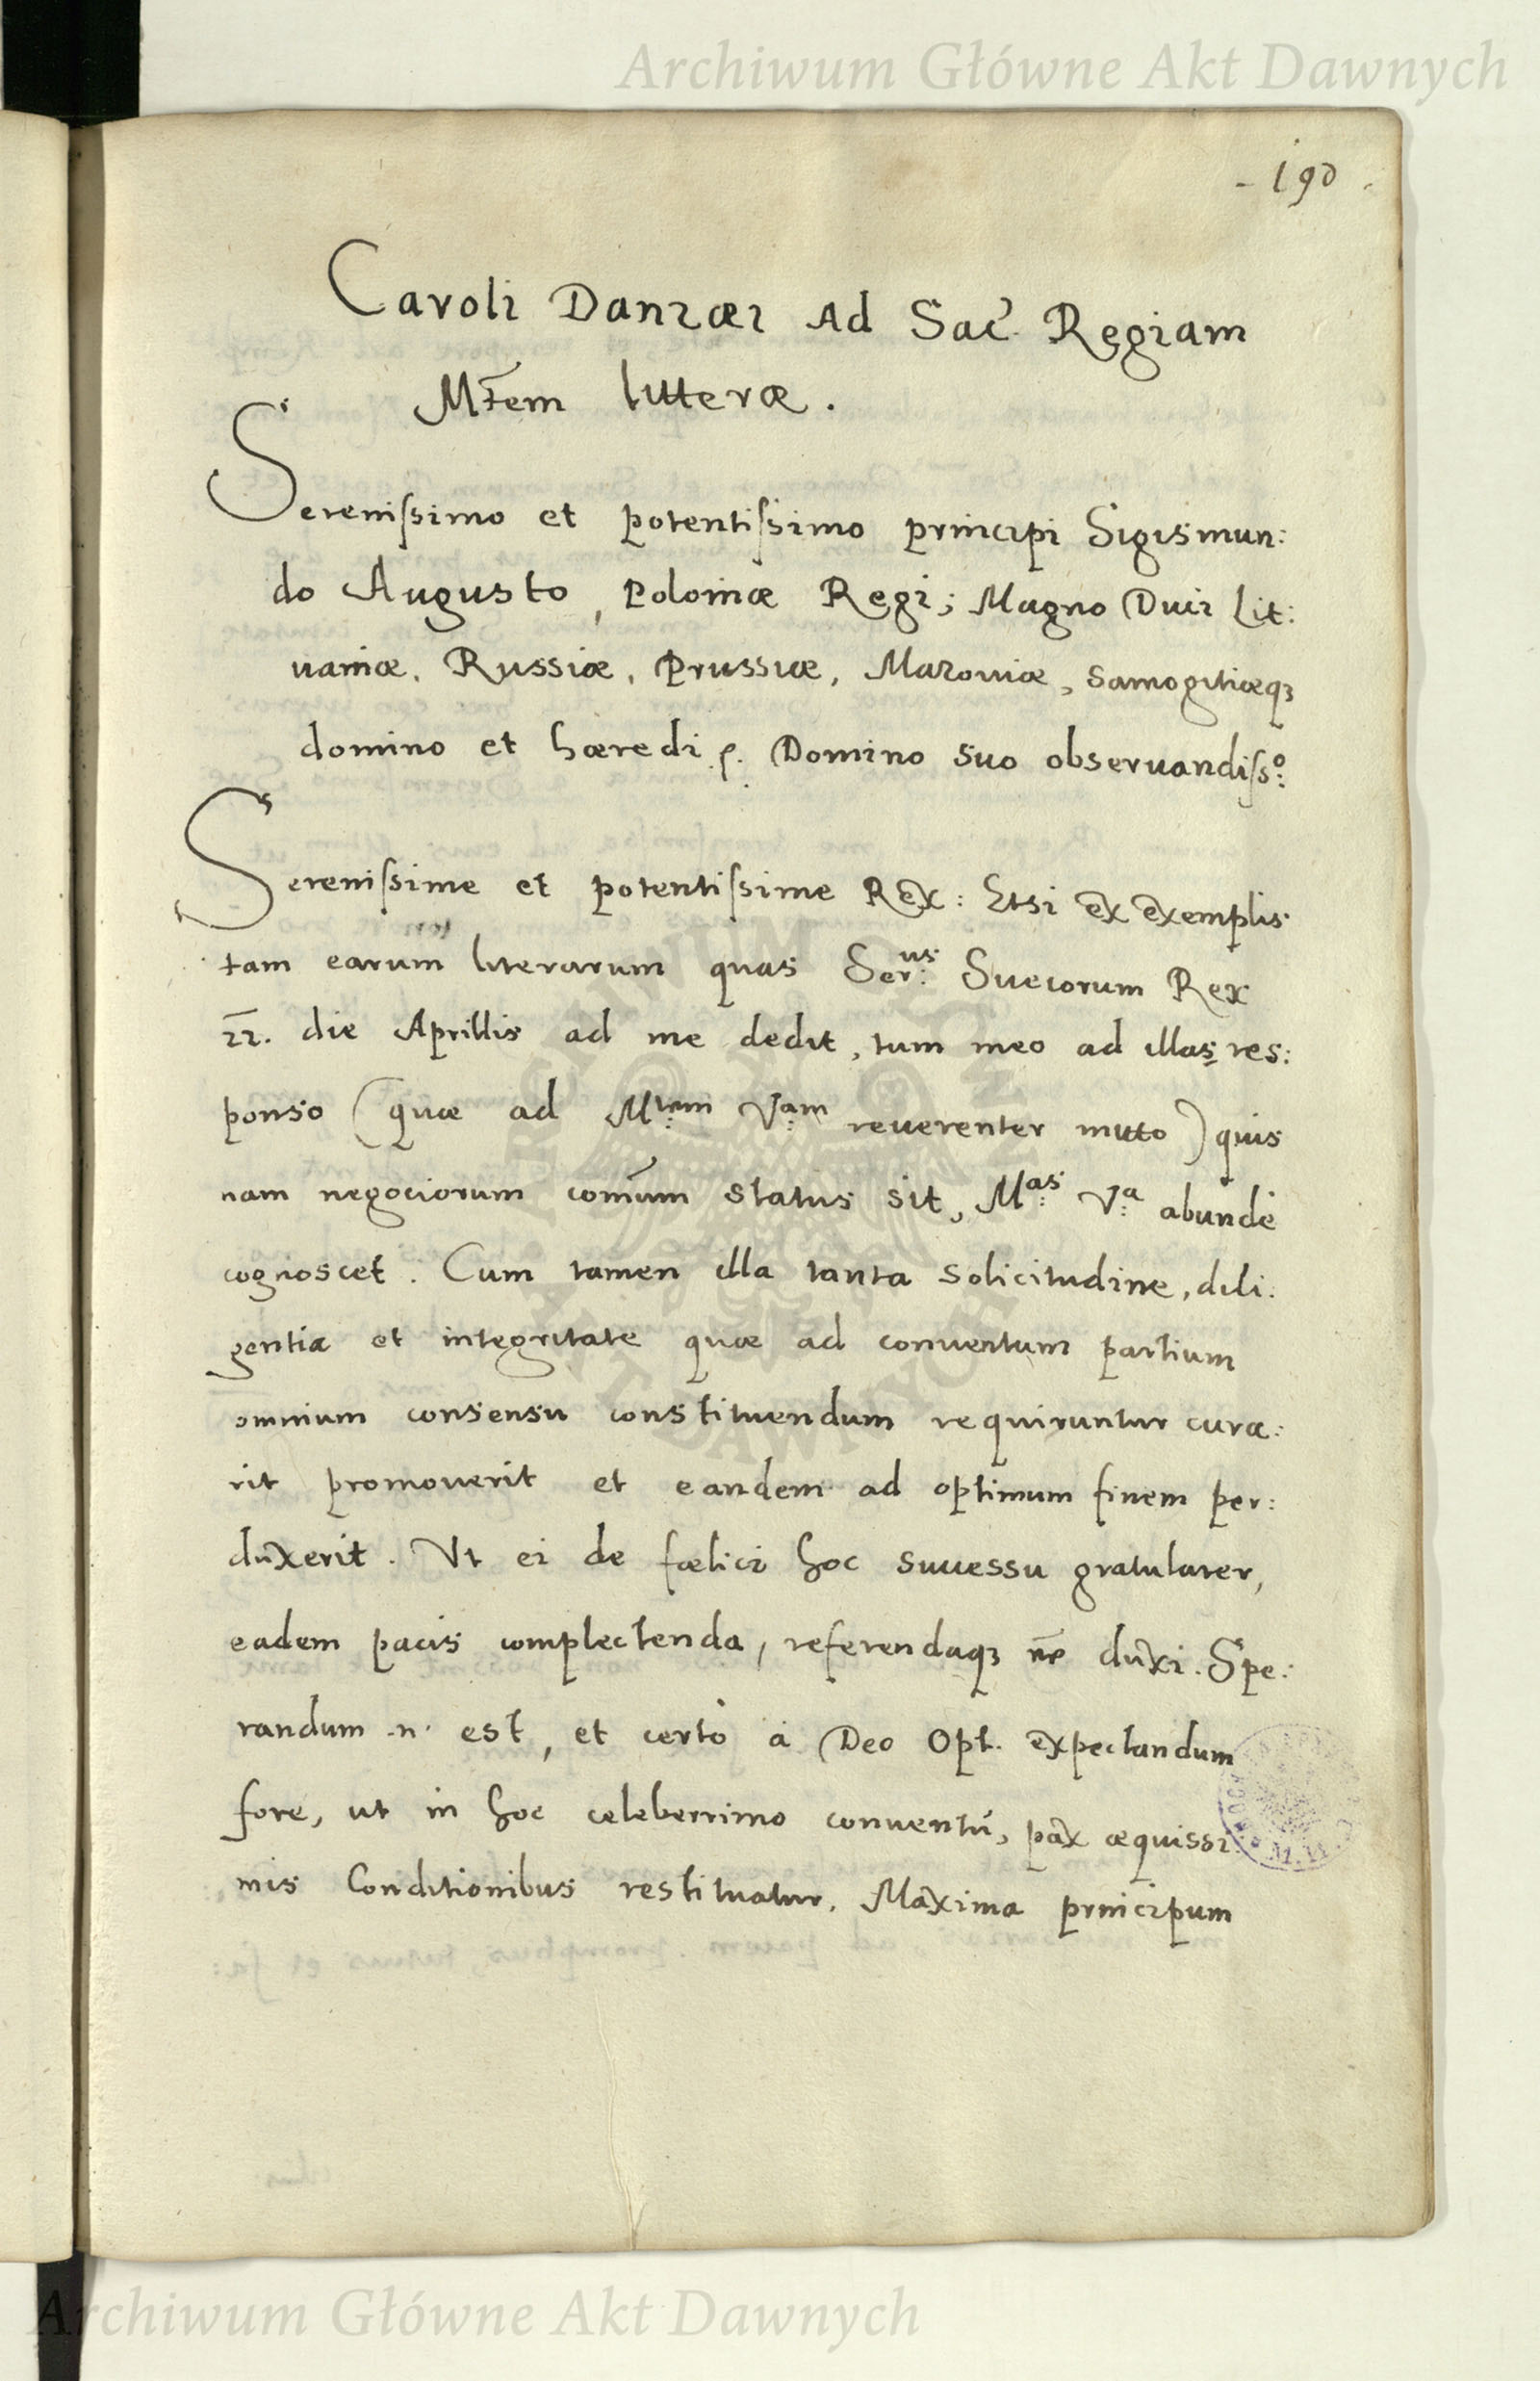 Archiwum Główne Akt Dawnych
- 190 -
Caroli Danzæi Ad Sac. Regiam
Mtem litteræ.
Serenissimo et potentissimo principi Sigismun:
do Augusto, Poloniæ Regi; Magno Duci Lit:
uaniæ, Russiæ, Prussiæ, Mazouiæ, Samogitiæq3
domino et hæredi Domino suo obseruandiss:o
Serenissime et potentissime Rex: Etsi ex exemplis
tam earum literarum quas Ser:us Suecorum Rex
22. die Aprillis ad me dedit, tum meo ad illas res:
ponso (quæ ad M:tem V:am reuerenter mitto) quis
nam negociorum comũm status sit, M:as V:a abundè
cognoscet. Cum tamen illa tanta solicitudine, dili:
gentia et integritate quæ ad conuentum partium
omnium consensu constituendum requiruntur cura:
rit promouerit et eandem ad optimum finem per:
duxerit. Vt ei de fœlici hoc successu gratularer,
eadem pacis complectenda, referendaq3 duxi. Spe:
randum .n. est, et certò à Deo Opt. expectandum
fore, ut in hoc celeberrimo conuentu, pax æquissi
mis Conditionibus restituatur. Maxima principum
Archiwum Główne Akt Dawnych